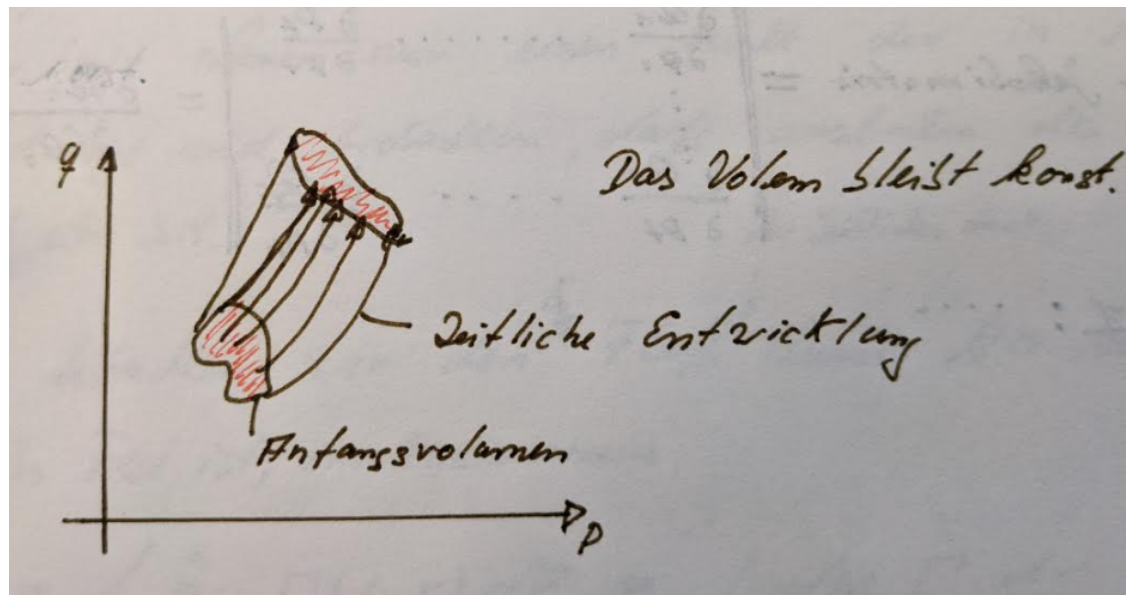 q
Das Volum bleibt konst.
Zeitliche Entwicklung
Anfangsvolumen
p